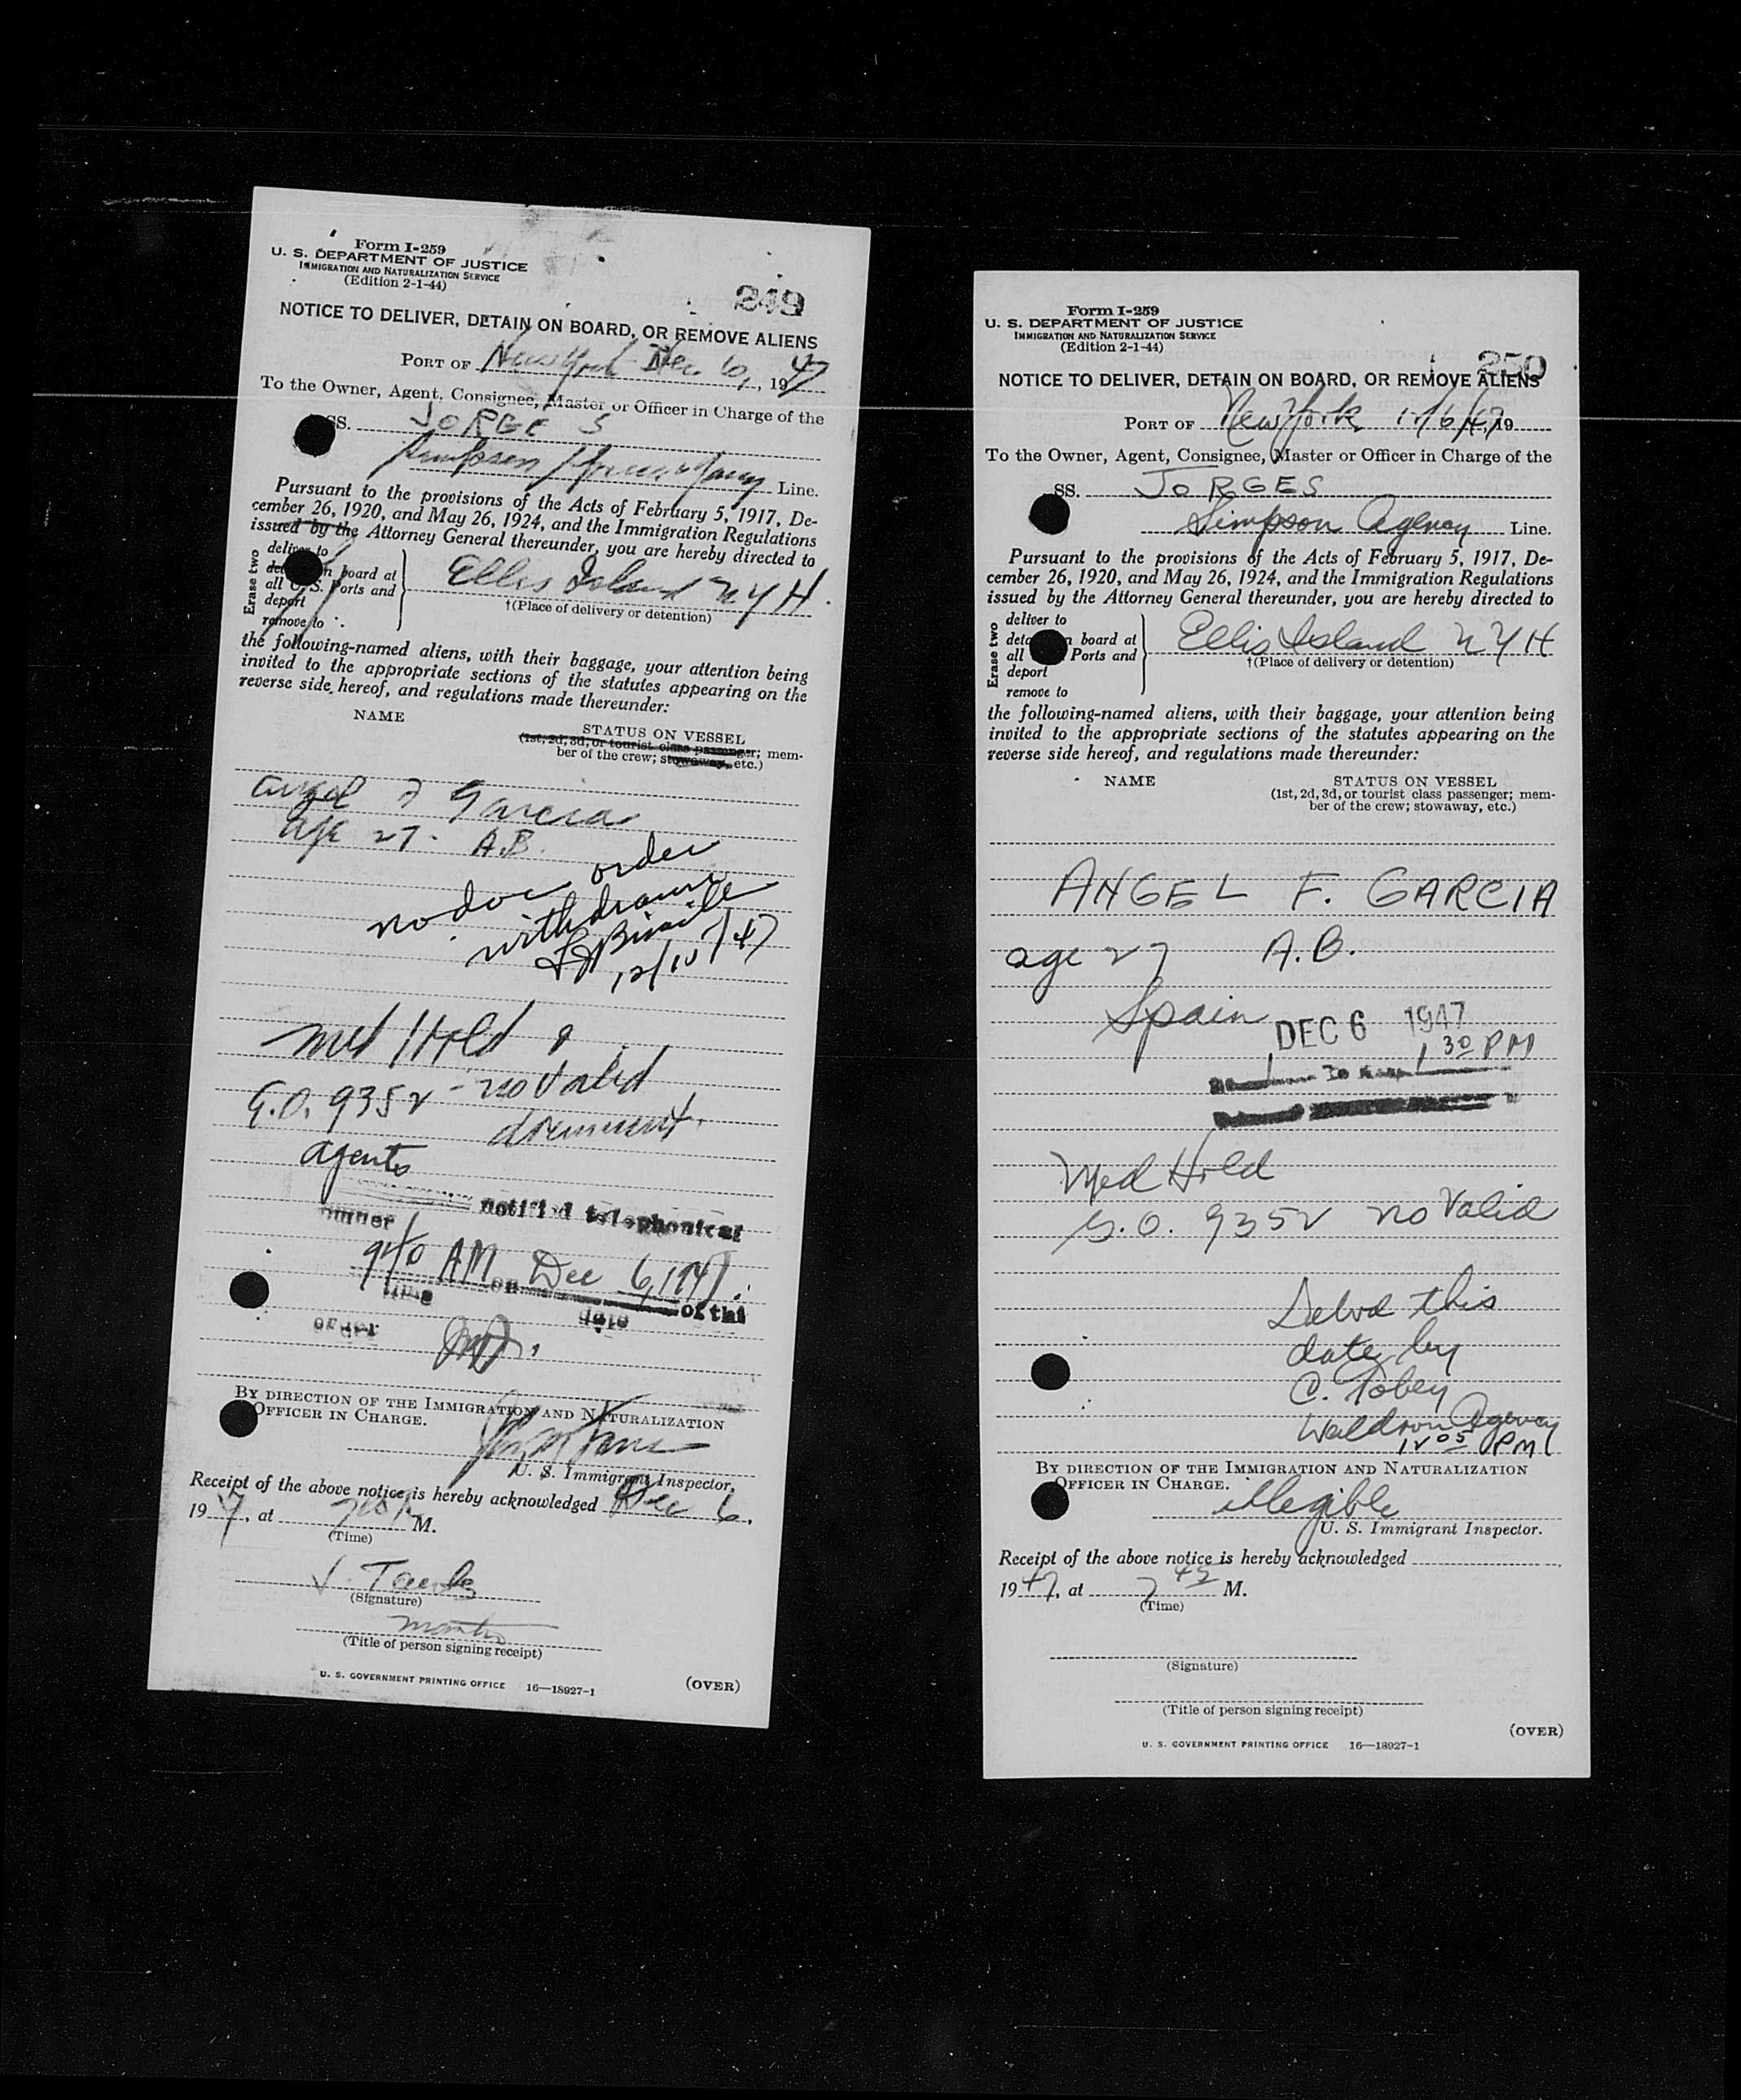 Form I-259
U. S. DEPARTMENT OF JUSTICE
IMMIGRATION AND NATURALIZATION SERVICE
(Edition 2-1-44)
249
NOTICE TO DELIVER, DETAIN ON BOARD, OR REMOVE ALIENS
PORT OF New York Dec 6, 1947
To the Owner, Agent, Consignee, Master or Officer in Charge of the
SS. JORGE S
Simpson Line.
Pursuant to the provisions of the Acts of February 5, 1917, De-
cember 26, 1920, and May 26, 1924, and the Immigration Regulations
issued by the Attorney General thereunder, you are hereby directed to
Erase two
deliver to
board at
all U. S. Ports and
deport
remove to
Ellis Island NYH.
†(Place of delivery or detention)
the following-named aliens, with their baggage, your attention being
invited to the appropriate sections of the statutes appearing on the
reverse side hereof, and regulations made thereunder:
NAME
STATUS ON VESSEL
(1st, 2d, 3d, or tourist class passenger; mem-
ber of the crew; stowaway, etc.)
Angel F Garcia
age 27. A.B.
no doc order
withdrawn
12/10/47
med Hold &
G.O. 9352 - no valid
document.
agents
notified telephonical
9:40 AM on Dec 6, 1947.
time date of this
order
BY DIRECTION OF THE IMMIGRATION AND NATURALIZATION
OFFICER IN CHARGE.
U. S. Immigrant Inspector.
Receipt of the above notice is hereby acknowledged Dec 6,
1947, at M.
(Time)
J.
(Signature)
(Title of person signing receipt)
U. S. GOVERNMENT PRINTING OFFICE 16—18927-1
(OVER)
Form I-259
U. S. DEPARTMENT OF JUSTICE
IMMIGRATION AND NATURALIZATION SERVICE
(Edition 2-1-44)
250
NOTICE TO DELIVER, DETAIN ON BOARD, OR REMOVE ALIENS
PORT OF New York 12/6/47, 19
To the Owner, Agent, Consignee, Master or Officer in Charge of the
SS. JORGE S
Simpson Agency Line.
Pursuant to the provisions of the Acts of February 5, 1917, De-
cember 26, 1920, and May 26, 1924, and the Immigration Regulations
issued by the Attorney General thereunder, you are hereby directed to
Erase two
deliver to
board at
all Ports and
deport
remove to
Ellis Island NYH
†(Place of delivery or detention)
the following-named aliens, with their baggage, your attention being
invited to the appropriate sections of the statutes appearing on the
reverse side hereof, and regulations made thereunder:
NAME
STATUS ON VESSEL
(1st, 2d, 3d, or tourist class passenger; mem-
ber of the crew; stowaway, etc.)
ANGEL F. GARCIA
age 27 A.B.
Spain
DEC 6 1947
1 30 PM
Med Hold
G.O. 9352 no valid
Delvd this
date by
C. Tobey
Waldron Agency
12 05 PM
BY DIRECTION OF THE IMMIGRATION AND NATURALIZATION
OFFICER IN CHARGE.
illegible
U. S. Immigrant Inspector.
Receipt of the above notice is hereby acknowledged
1947, at 7 45 M.
(Time)
(Signature)
(Title of person signing receipt)
(OVER)
U. S. GOVERNMENT PRINTING OFFICE 16—18927-1